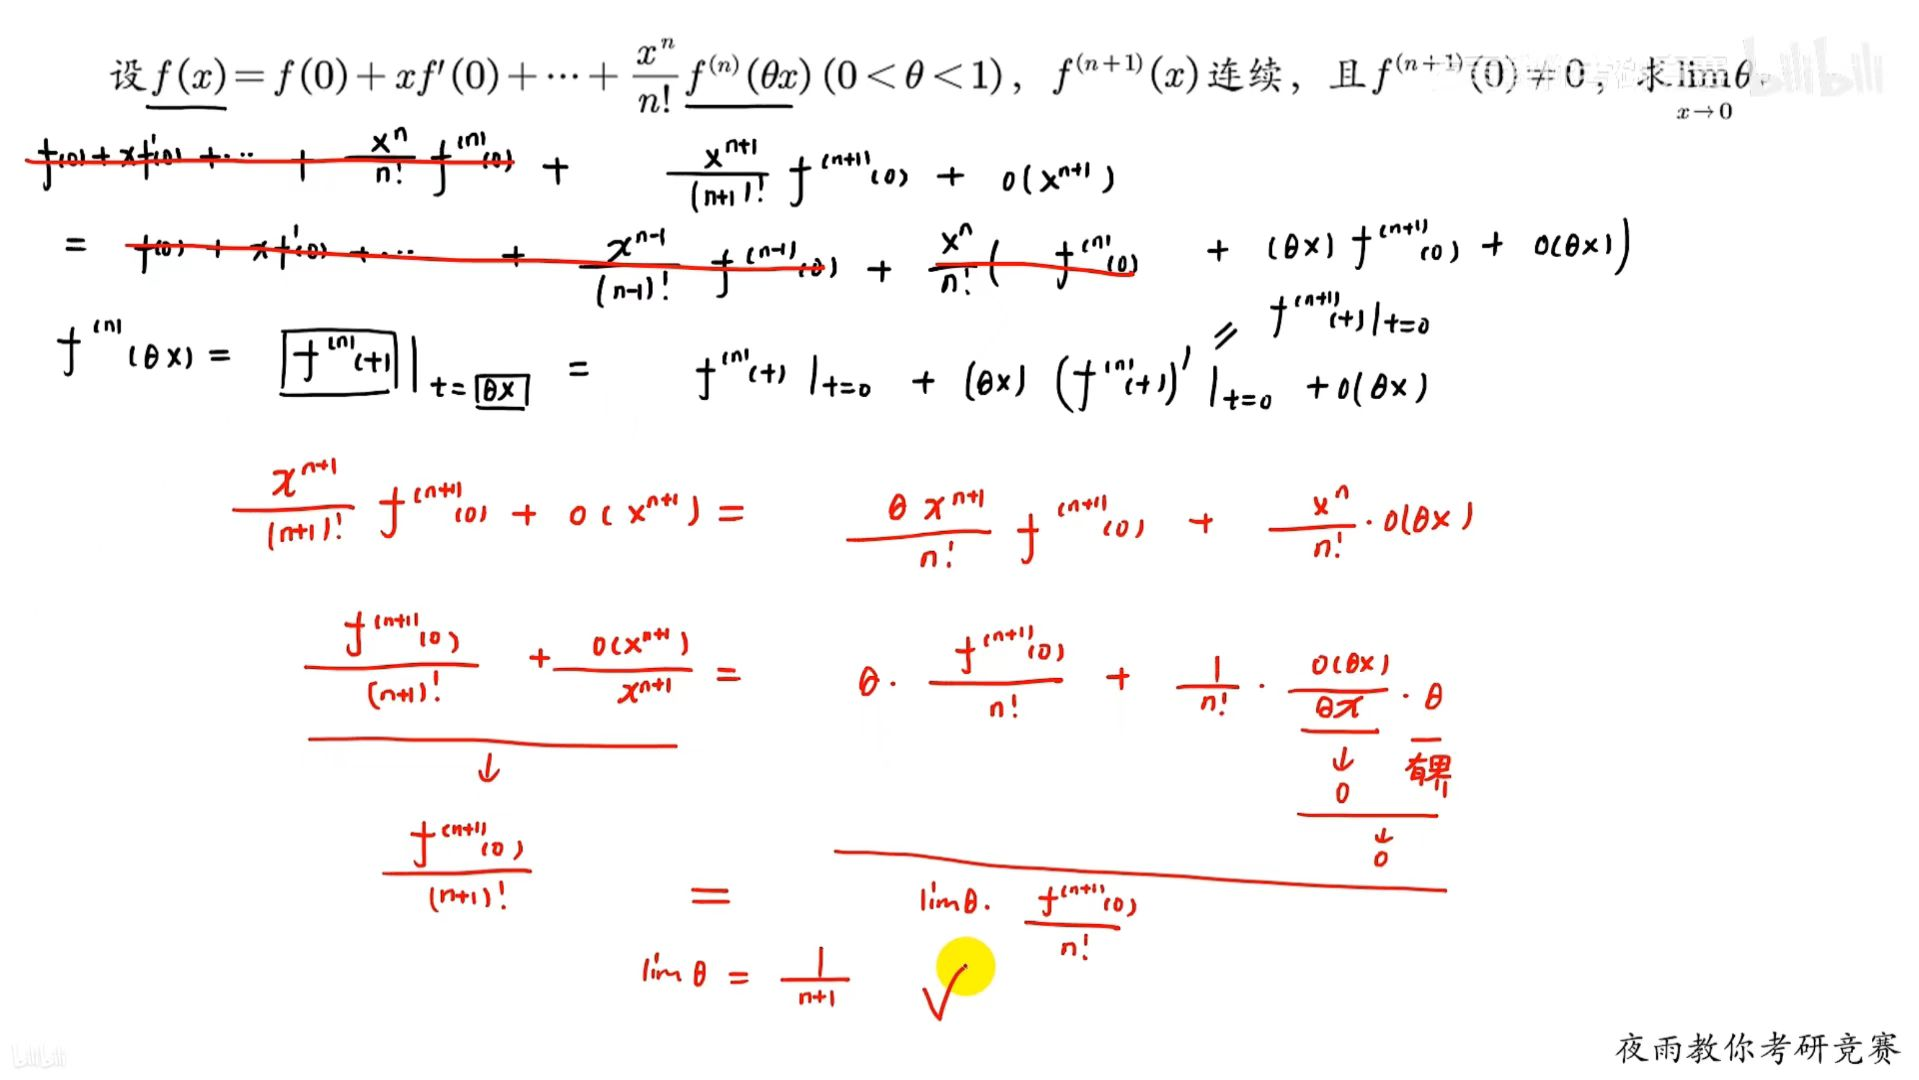 设 f(x) = f(0) + xf′(0) + ⋯ + \frac{x^n}{n!} f^{(n)}(θx) (0 < θ < 1), f^{(n+1)}(x) 连续, 且 f^{(n+1)}(0) ≠ 0, 求 \lim_{x→0} θ.
bilibili
f(0) + xf′(0) + ⋯ + \frac{x^n}{n!} f^{(n)}(0) + \frac{x^{n+1}}{(n+1)!} f^{(n+1)}(0) + o(x^{n+1})
= f(0) + xf′(0) + ⋯ + \frac{x^{n-1}}{(n-1)!} f^{(n-1)}(0) + \frac{x^n}{n!} ( f^{(n)}(0) + (θx) f^{(n+1)}(0) + o(θx) )
f^{(n+1)}(t)|_{t=0}
f^{(n)}(θx) = f^{(n)}(t)|_{t=θx} = f^{(n)}(t)|_{t=0} + (θx) (f^{(n)}(t))′|_{t=0} + o(θx)
\frac{x^{n+1}}{(n+1)!} f^{(n+1)}(0) + o(x^{n+1}) = \frac{θx^{n+1}}{n!} f^{(n+1)}(0) + \frac{x^n}{n!} · o(θx)
\frac{f^{(n+1)}(0)}{(n+1)!} + \frac{o(x^{n+1})}{x^{n+1}} = θ · \frac{f^{(n+1)}(0)}{n!} + \frac{1}{n!} · \frac{o(θx)}{θx} · θ
↓ ↓ 有界
0
↓
0
\frac{f^{(n+1)}(0)}{(n+1)!} = lim θ · \frac{f^{(n+1)}(0)}{n!}
lim θ = \frac{1}{n+1} √
夜雨教你考研竞赛
bilibili